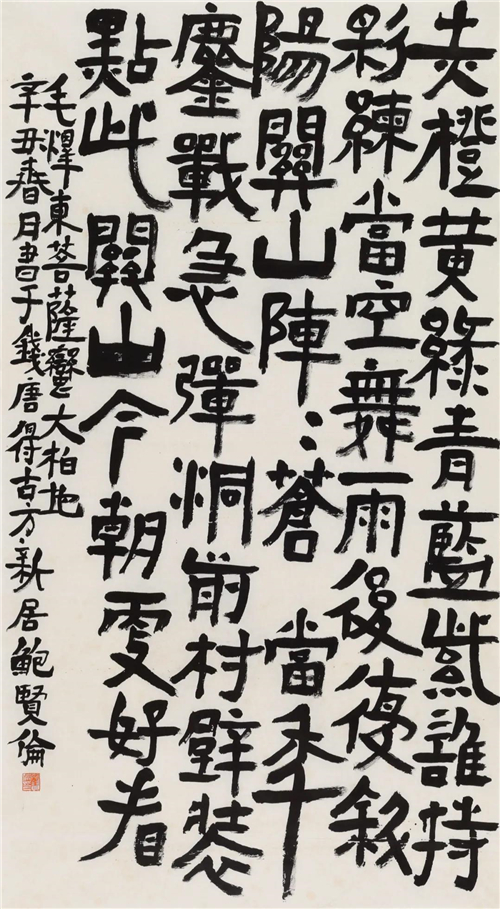 赤橙黄綠青藍紫誰持
彩練當空舞雨後復斜
陽關山陣〻蒼當年
鏖戰急彈洞前村壁裝
點此關山今朝更好看
毛澤東菩薩蠻大柏地
辛丑春月書于錢唐得古方新居鮑賢倫